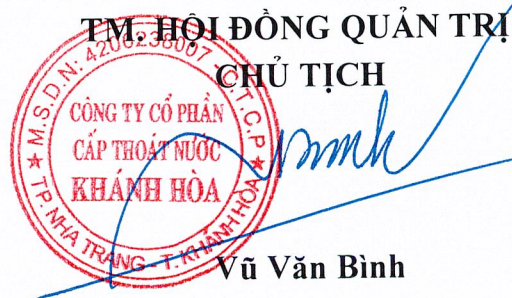 TM. HỘI ĐỒNG QUẢN TRỊ
CHỦ TỊCH
M.S.D.N: 4200238007 - C.T.C.P
CÔNG TY CỔ PHẦN
CẤP THOÁT NƯỚC
KHÁNH HÒA
TP. NHA TRANG - T. KHÁNH HÒA
Vũ Văn Bình